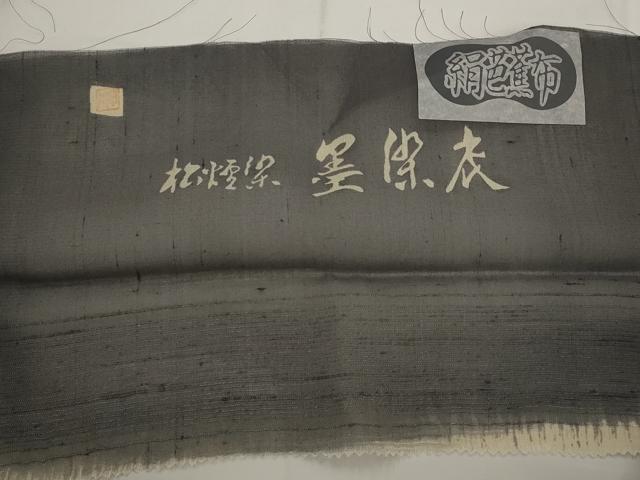 絹芭蕉布
墨染衣
松煙染